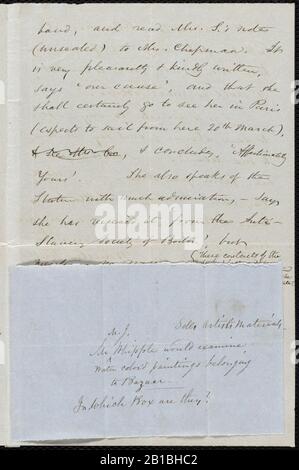 hand, and read Mrs. S.'s note
(unsealed) to Mrs. Chapman. It
is very pleasantly & kindly written,
says "our cause", and that she
shall certainly go to see her in Paris
(expects to sail from here 20th March),
& concludes, "Affectionately
Yours". She also speaks of the
with much admiration, - says
she has it from the Anti-
Slavery Society of Boston, but
contents of the
M. J. Sells Artists Materials,
Mr Whipple would examine
Water color paintings belonging
to Bazaar.
In which Box are they?
alamy
Image ID: 2B1BHC2
www.alamy.com